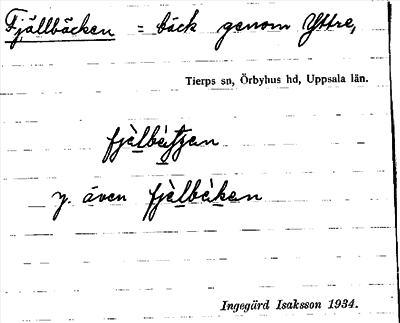 Fjällbäcken = bäck genom Yttre,
Tierps sn, Örbyhus hd, Uppsala län.
fjàlbètjen
y. även fjàlbèken
Ingegärd Isaksson 1934.